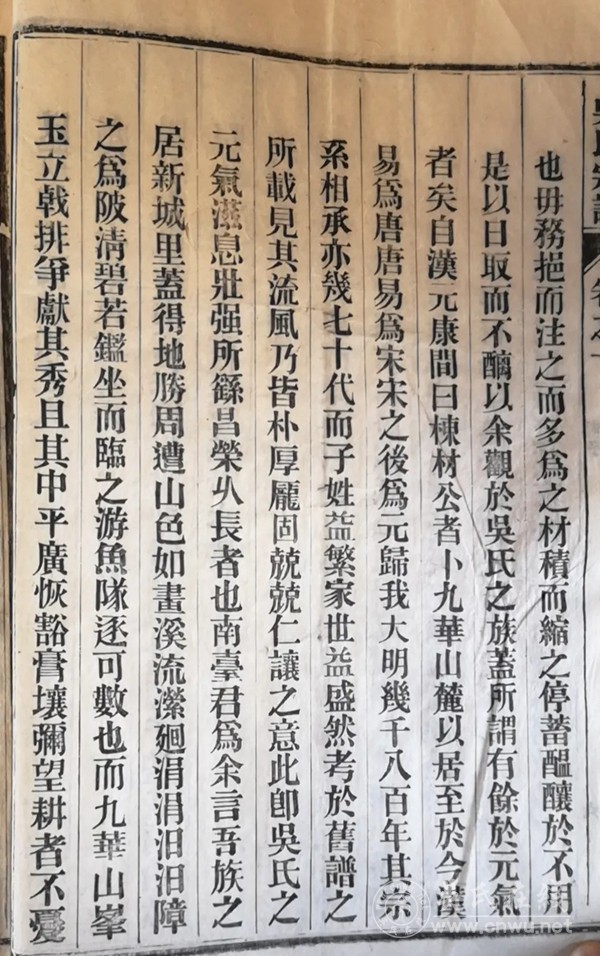 吳氏宗譜 卷之一
也毋務挹而注之而多爲之材積而縮之停蓄醞釀於不用
是以日取而不酾以余觀於吳氏之族蓋所謂有餘於元氣
者矣自漢元康間曰棟材公者卜九華山麓以居至於今漢
易爲唐唐易爲宋宋之後爲元歸我大明幾千八百年其宗
系相承亦幾七十代而子姓益繁家世益盛然考於舊譜之
所載見其流風乃皆朴厚龐固兢兢仁讓之意此卽吳氏之
元氣滋息壯强所繇昌榮久長者也南臺君爲余言吾族之
居新城里蓋得地勝周遭山色如畫溪流瀠廻涓涓汨汨障
之爲陂清碧若鑑坐而臨之游魚隊逐可數也而九華山峯
玉立戟排爭獻其秀且其中平廣恢豁膏壤彌望耕者不憂
www.cnwu.net